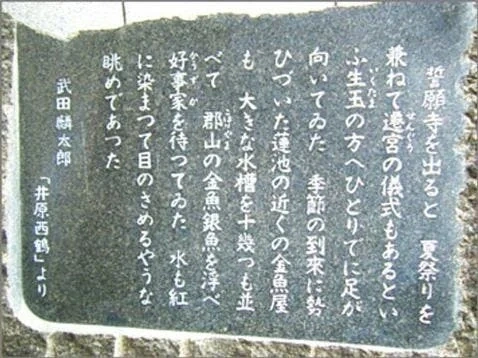 誓願寺を出ると 夏祭りを
兼ねて遷宮の儀式もあるとい
ふ生玉の方へひとりでに足が
向いてゐた 季節の到来に勢
ひづいた蓮池の近くの金魚屋
も 大きな水槽を十幾つも並
べて 郡山の金魚銀魚を浮べ
好事家を待つてゐた 水も紅
に染まつて目のさめるやうな
眺めであつた
武田麟太郎
「井原西鶴」より